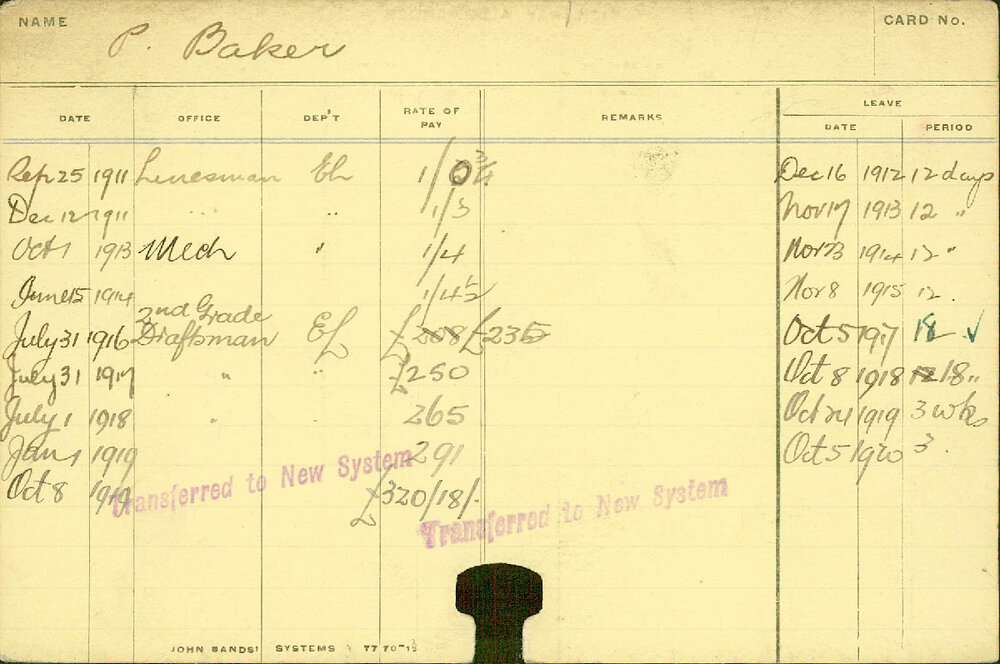 NAME P. Baker CARD No.
LEAVE
DATE OFFICE DEP'T RATE OF PAY REMARKS DATE PERIOD
Sep 25 1911 Linesman El 1/0 3/4 Dec 16 1912 12 days
Dec 12 1911 " " 1/3 Nov 17 1913 12 "
Oct 1 1913 Mech " 1/4 Nov 23 1914 12 "
June 15 1914 1/4 1/2 Nov 8 1915 12 "
2nd Grade
July 31 1916 Draftsman El £208 £235 Oct 5 1917 18 ✓
July 31 1917 " " £250 Oct 8 1918 12 18 "
July 1 1918 " 265 Oct 24 1919 3 wks
Jan 1 1919 291 Oct 5 1920 3
Oct 8 1919 £320/18/-
Transferred to New System
Transferred to New System
JOHN SANDS' SYSTEMS